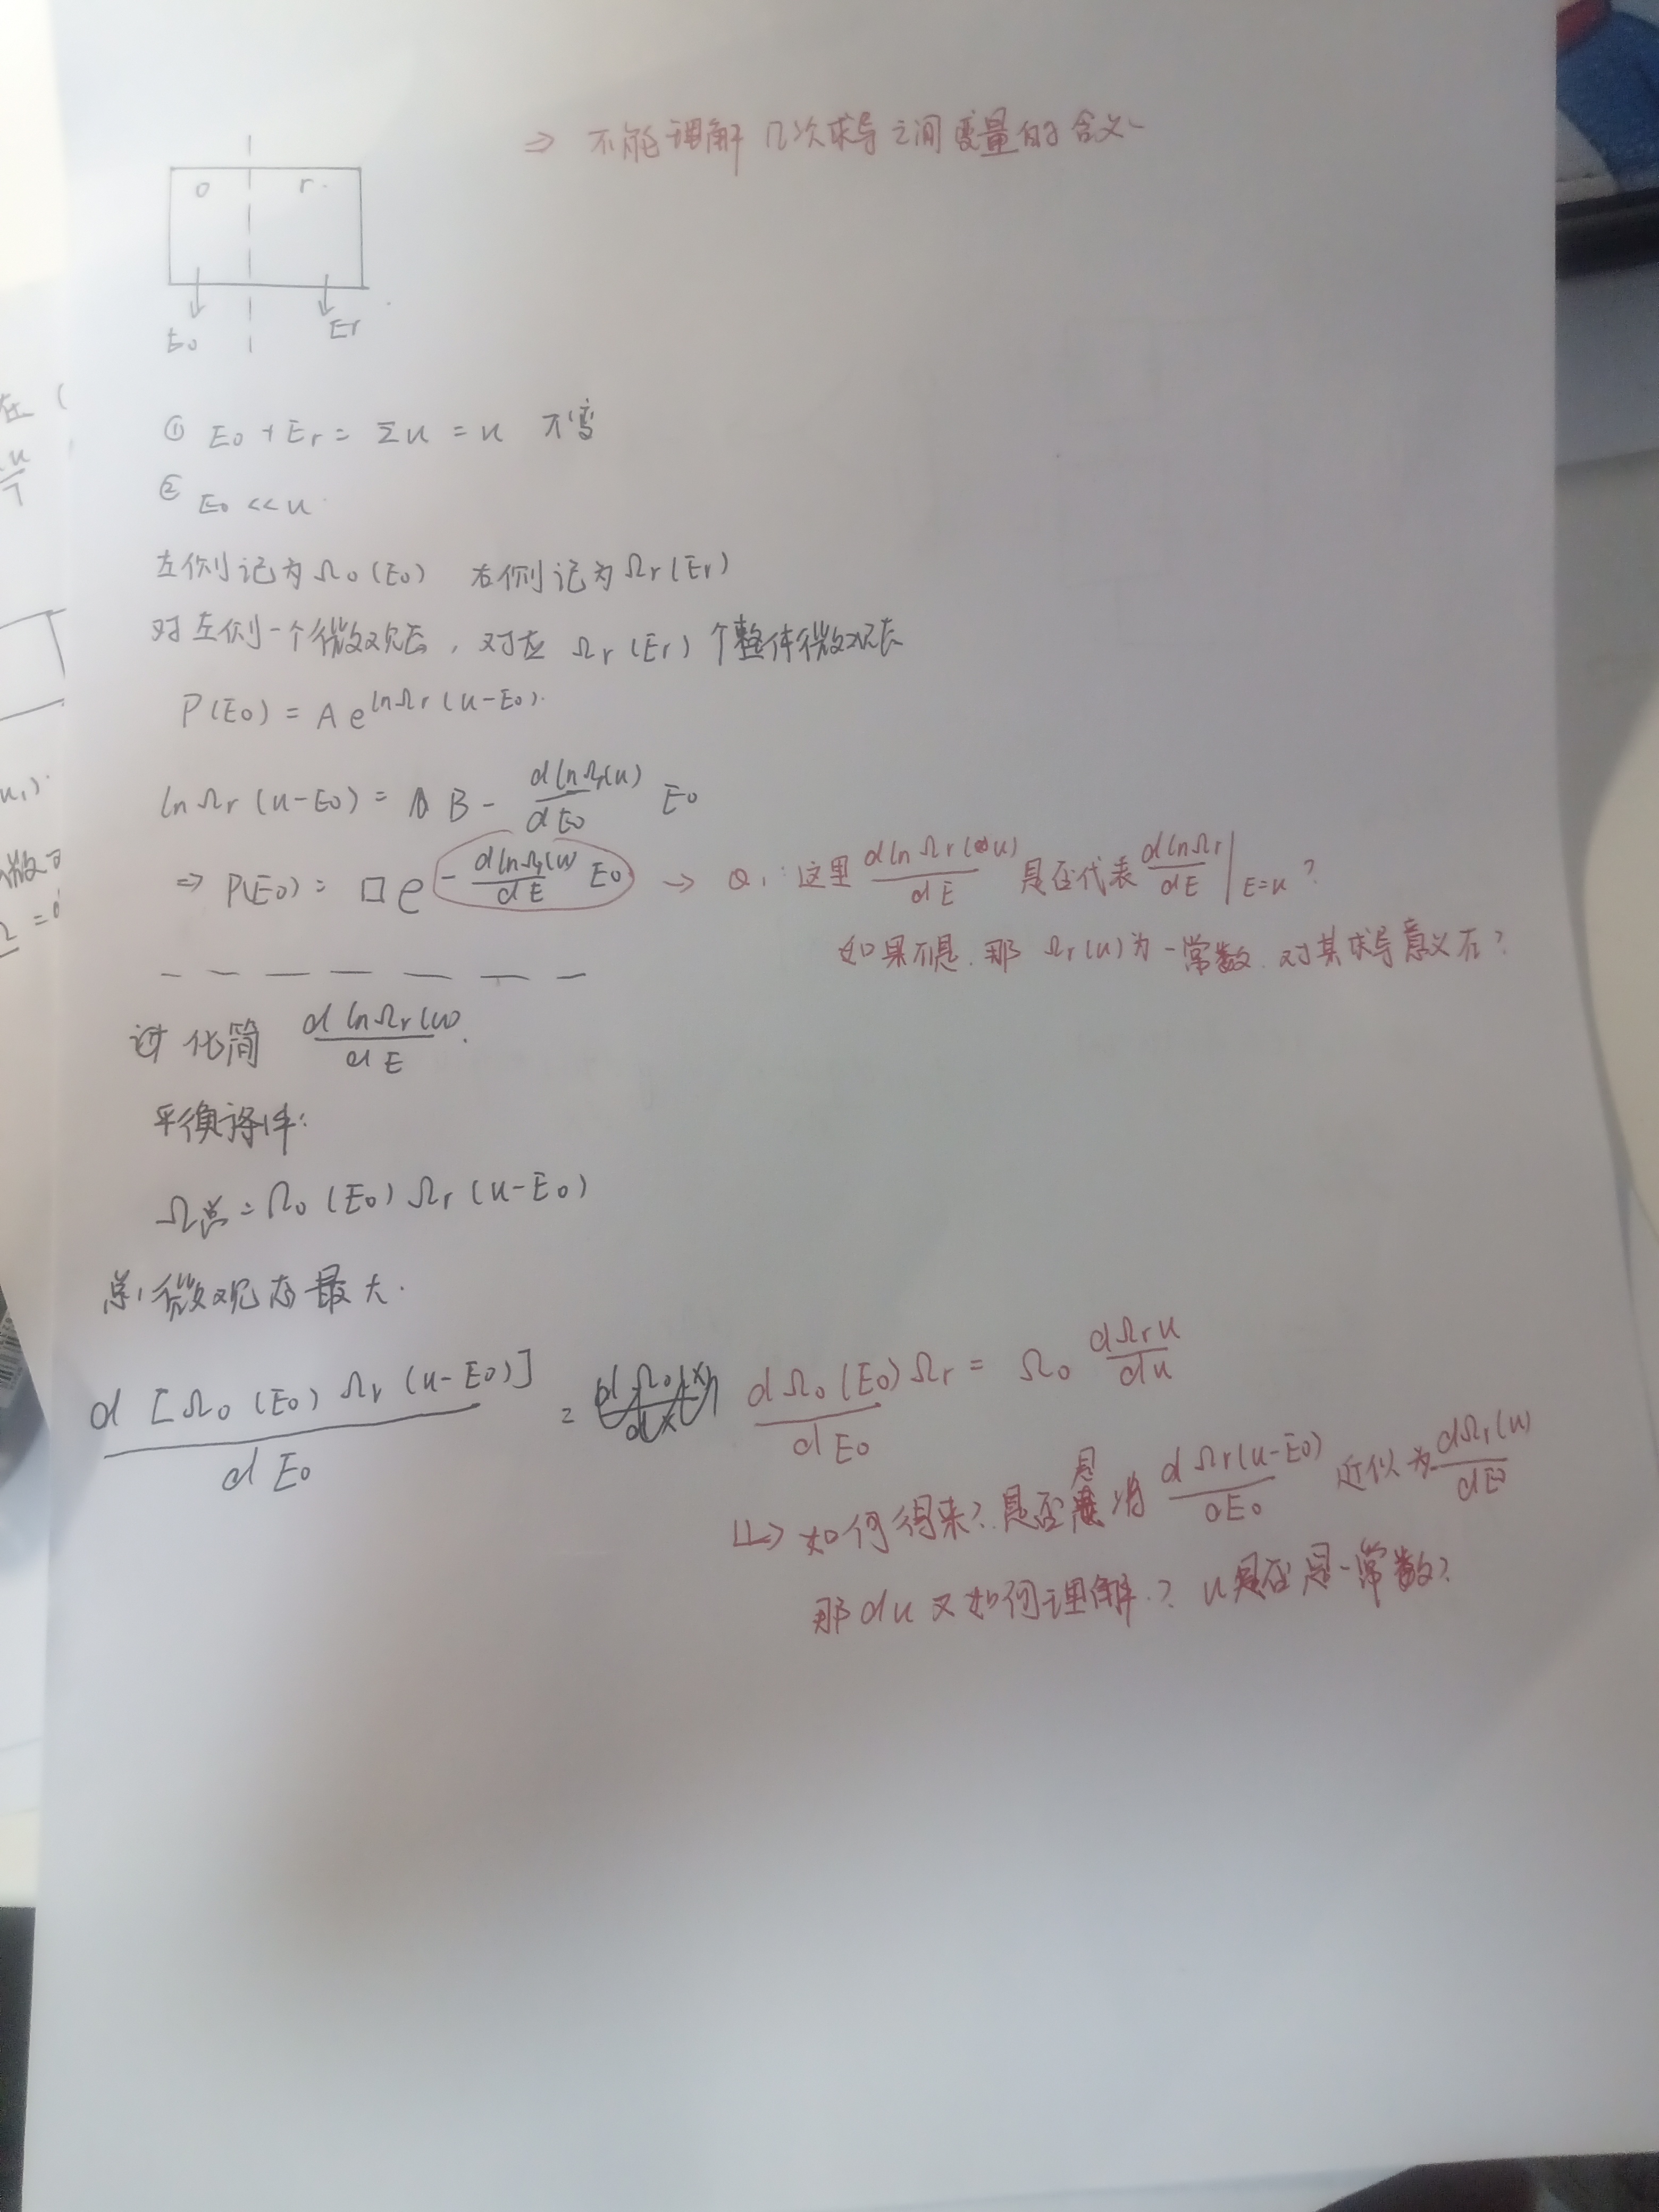 ⇒ 不能理解几次求导之间变量的含义
o r
E₀ Er
① E₀ + Er = Σu = u 不变
② E₀ << u
左侧记为Ω₀(E₀) 右侧记为Ωr(Er)
对左侧一个微观态，对应 Ωr(Er) 个整体微观态
P(E₀) = A e^{lnΩr(u-E₀)}.
lnΩr(u-E₀) = B - \frac{d lnΩr(u)}{dE₀} E₀
⇒ P(E₀) = □ e^{-\frac{d lnΩr(u)}{dE} E₀} → Q₁: 这里 \frac{d lnΩr(u)}{dE} 是否代表 \frac{d lnΩr}{dE}|_{E=u} ?
如果不是. 那 Ωr(u)为一常数. 对其求导意义在?
化简 \frac{d lnΩr(u)}{dE}.
平衡条件:
Ω总 = Ω₀(E₀)Ωr(u-E₀)
总微观态最大.
\frac{d[Ω₀(E₀)Ωr(u-E₀)]}{dE₀} = \frac{dΩ₀(E₀)Ωr}{dE₀} = Ω₀ \frac{dΩr u}{du}
↳ 如何得来? 是否是将 \frac{dΩr(u-E₀)}{dE₀} 近似为 \frac{dΩr(u)}{dE}
那du又如何理解? u是否是一常数?
在 (
u₁).